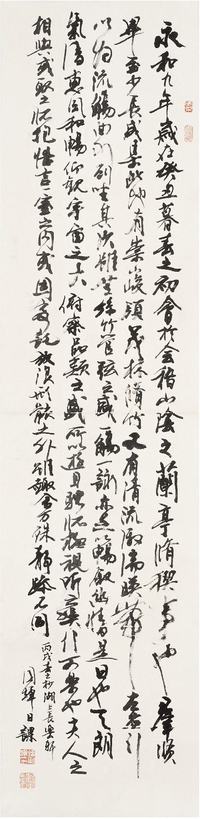 永和九年歲在癸丑暮春之初會於會稽山陰之蘭亭脩禊事也群賢
畢至少長咸集此地有崇山峻領茂林脩竹又有清流激湍映帶左右引
以為流觴曲水列坐其次雖無絲竹管弦之盛一觴一詠亦足以暢敘幽情是日也天朗
氣清惠風和暢仰觀宇宙之大俯察品類之盛所以遊目騁懷極視聽之娛信可樂也夫人之
相與或取諸懷抱悟言一室之內或因寄託放浪形骸之外雖趣舍萬殊靜躁不同
丙戌湖上長樂邨
日課